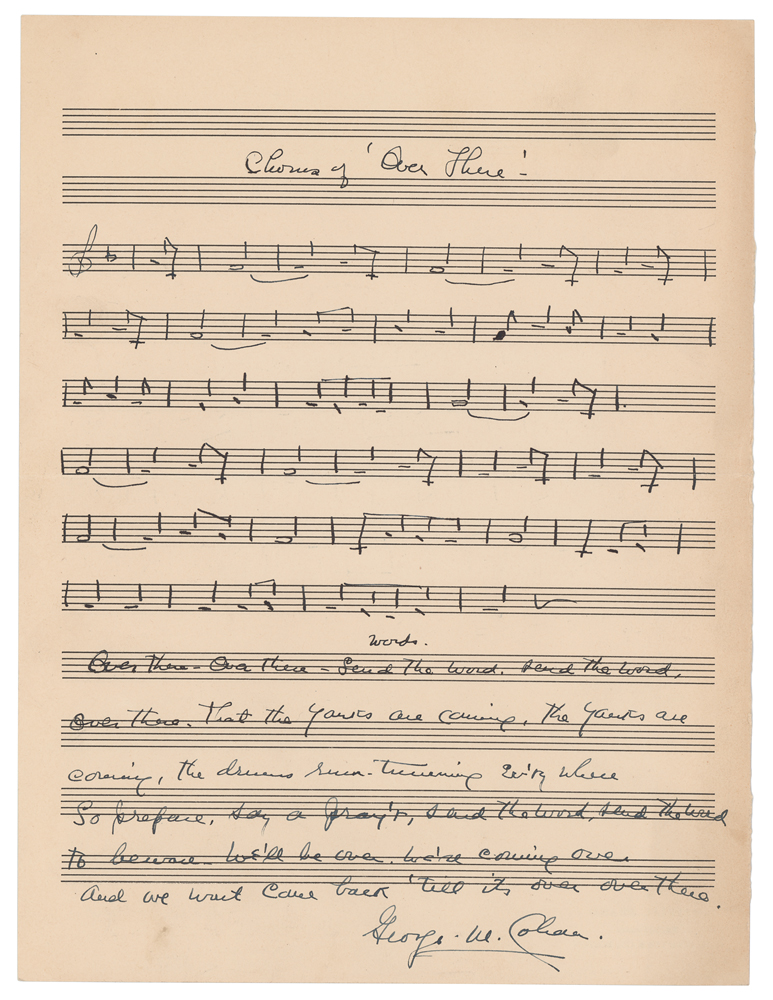 Chorus of 'Over There'-
words.
Over there - Over there - Send the word, send the word,
over there. That the Yanks are coming, the Yanks are
coming, the drums rum-tumming ev'ry where
So prepare, say a pray'r, send the word, send the word
to beware. We'll be over. We're coming over
And we wont come back 'till its over over there.
George. M. Cohan.